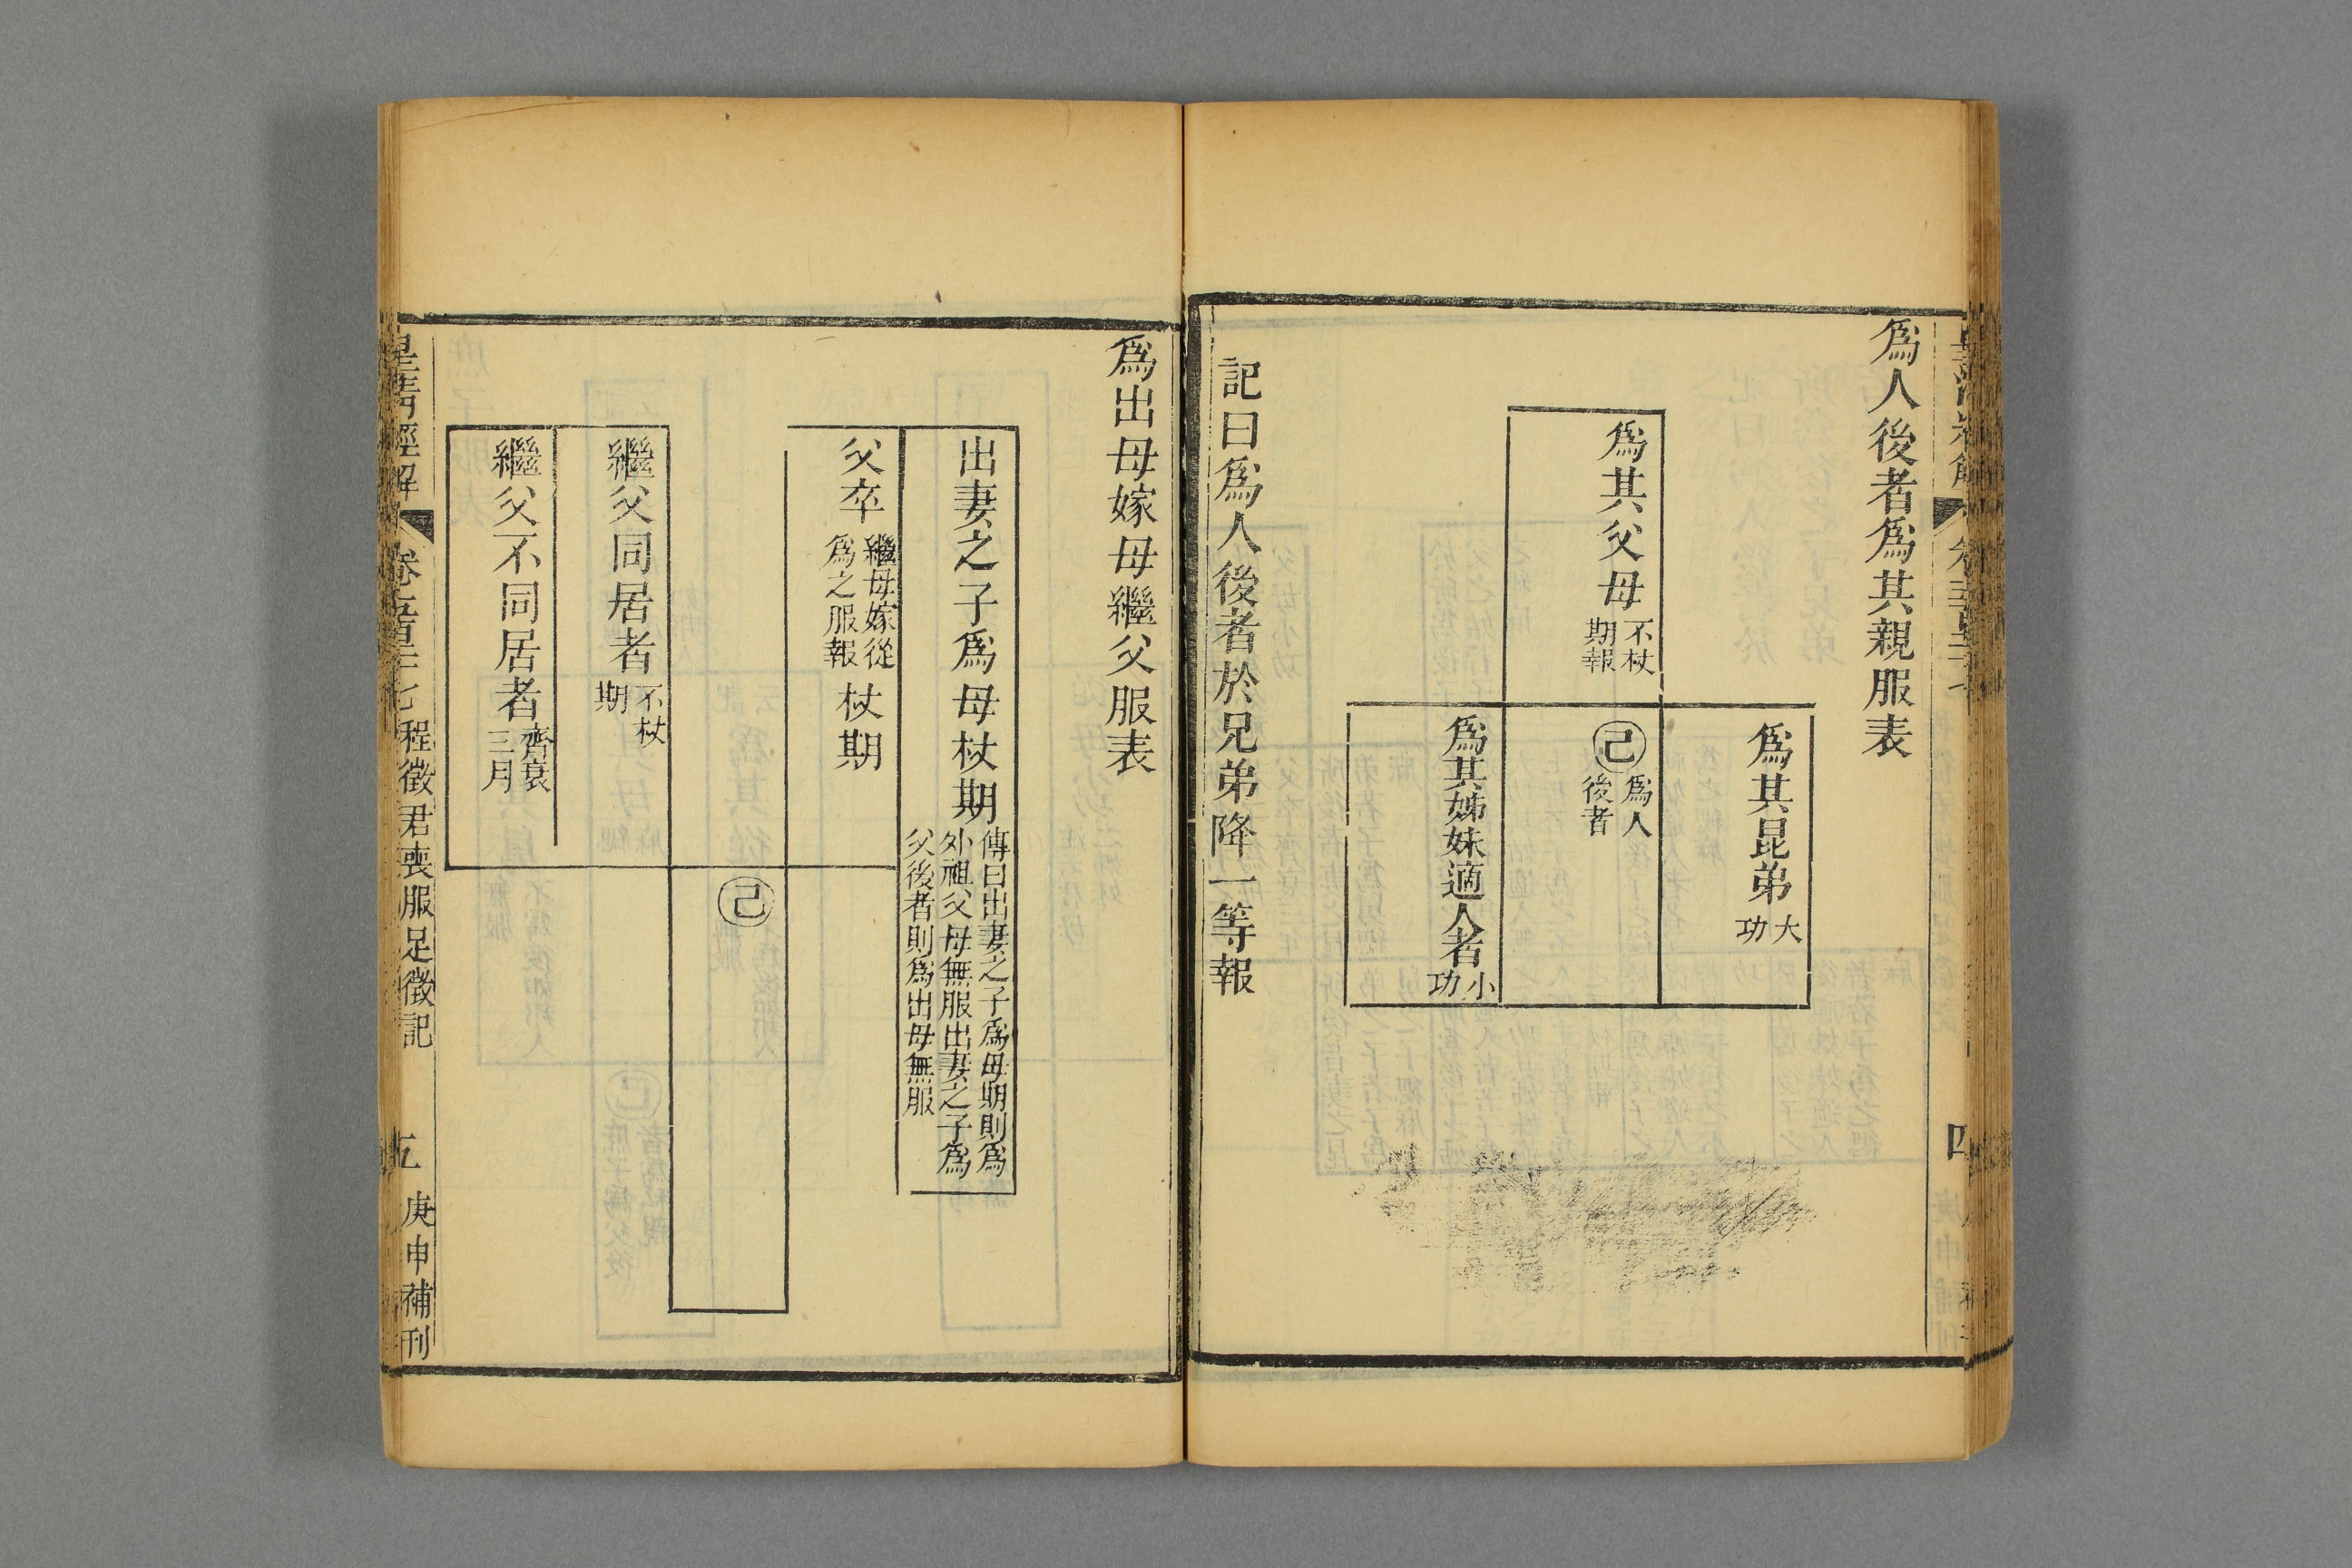 爲人後者爲其親服表
爲其昆弟
大
功
爲其父母
不杖
期報
己
爲人
後者
爲其姊妹適人者
小
功
記曰爲人後者於兄弟降一等報
四
爲出母嫁母繼父服表
出妻之子爲母杖期
傳曰出妻之子爲母期則爲
外祖父母無服出妻之子爲
父後者則爲出母無服
父卒
繼母嫁從
爲之服報
杖期
己
繼父同居者
不杖
期
繼父不同居者
齊衰
三月
皇清經解
程徵君喪服足徵記
五
庚申補刊